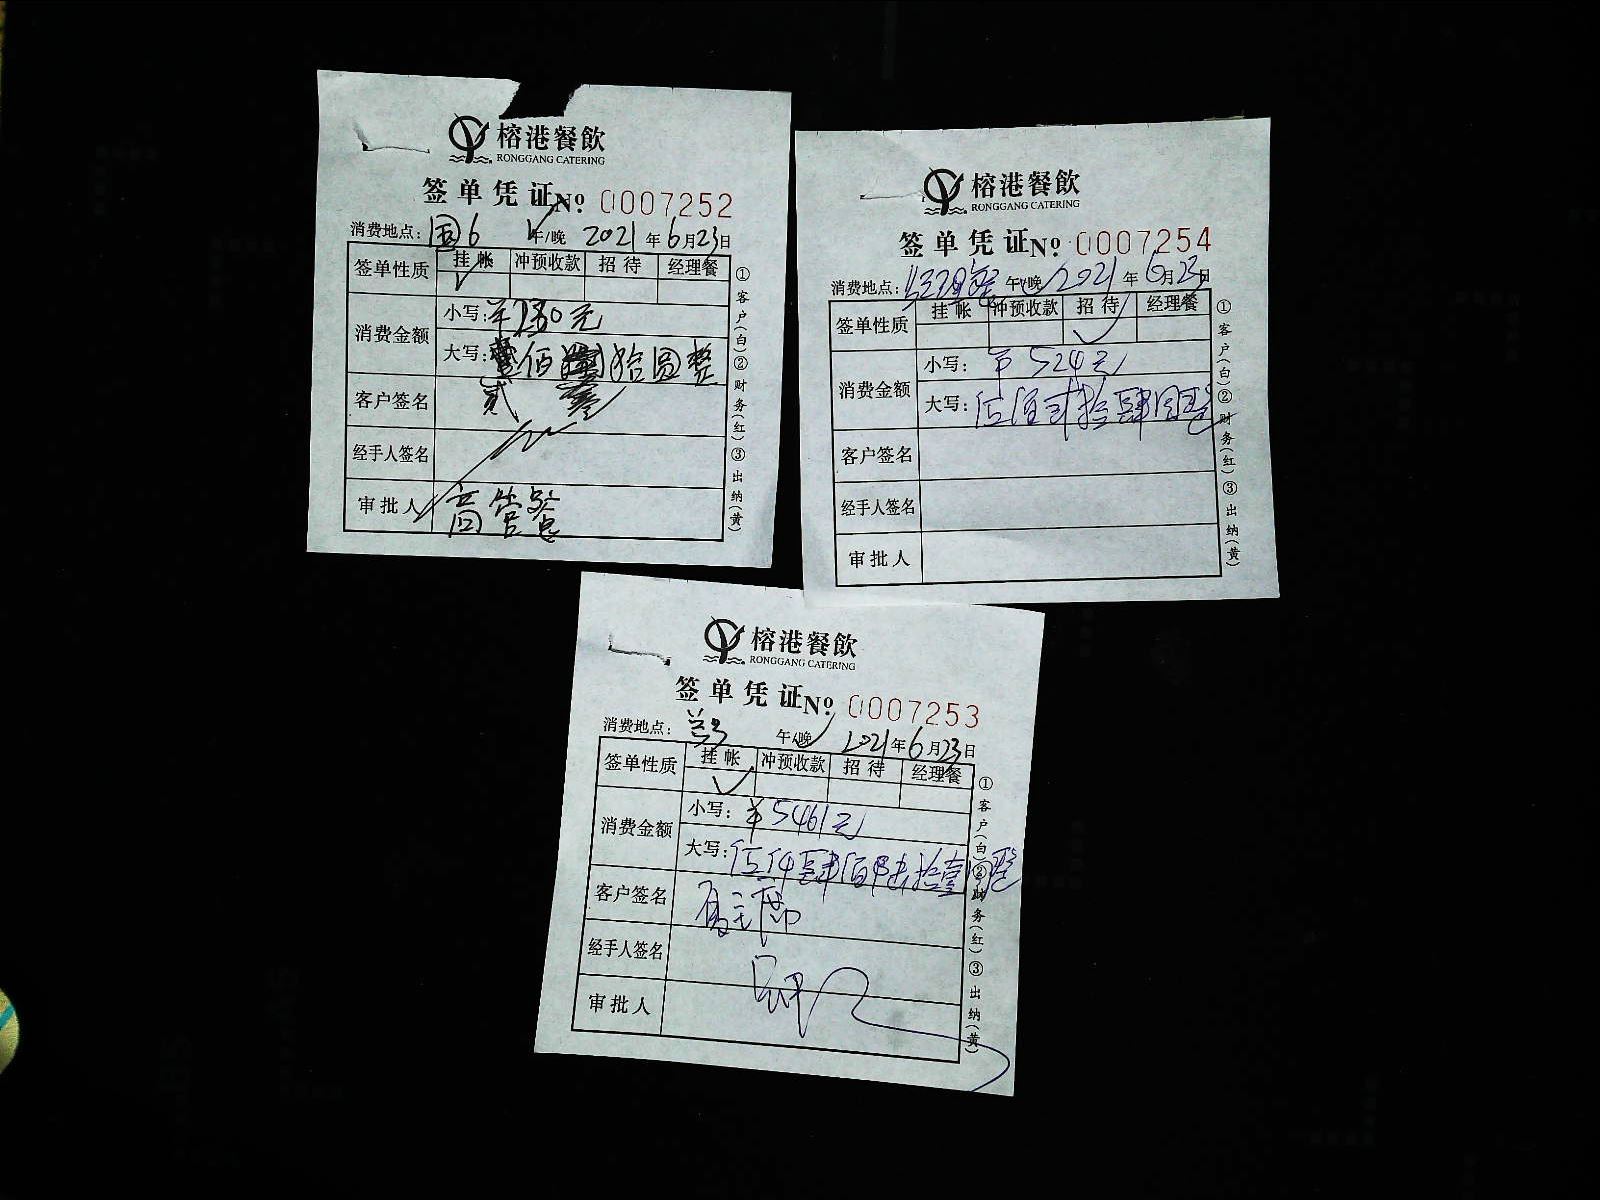 榕港餐飲
RONGGANG CATERING
签单凭证 No 0007252
消费地点: 国6 午/晚 2021年6月23日
签单性质 挂帐 冲预收款 招待 经理餐
消费金额 小写: ¥230元
大写: 佰拾圆整
贰 叁
客户签名
经手人签名
审批人 高管餐
①客户(白)②财务(红)③出纳(黄)
榕港餐飲
RONGGANG CATERING
签单凭证 No 0007254
消费地点: 经理餐 午/晚 2021年6月23日
签单性质 挂帐 冲预收款 招待 经理餐
消费金额 小写: ¥524元
大写: 伍佰贰拾肆圆整
客户签名
经手人签名
审批人
①客户(白)②财务(红)③出纳(黄)
榕港餐飲
RONGGANG CATERING
签单凭证 No 0007253
消费地点: 午/晚 2021年6月23日
签单性质 挂帐 冲预收款 招待 经理餐
消费金额 小写: ¥5461元
大写: 伍仟肆佰陆拾壹圆整
客户签名 主席
经手人签名
审批人
①客户(白)②财务(红)③出纳(黄)